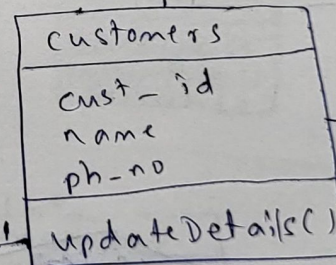 customers
cust_id
name
ph_no
1
updateDetails()